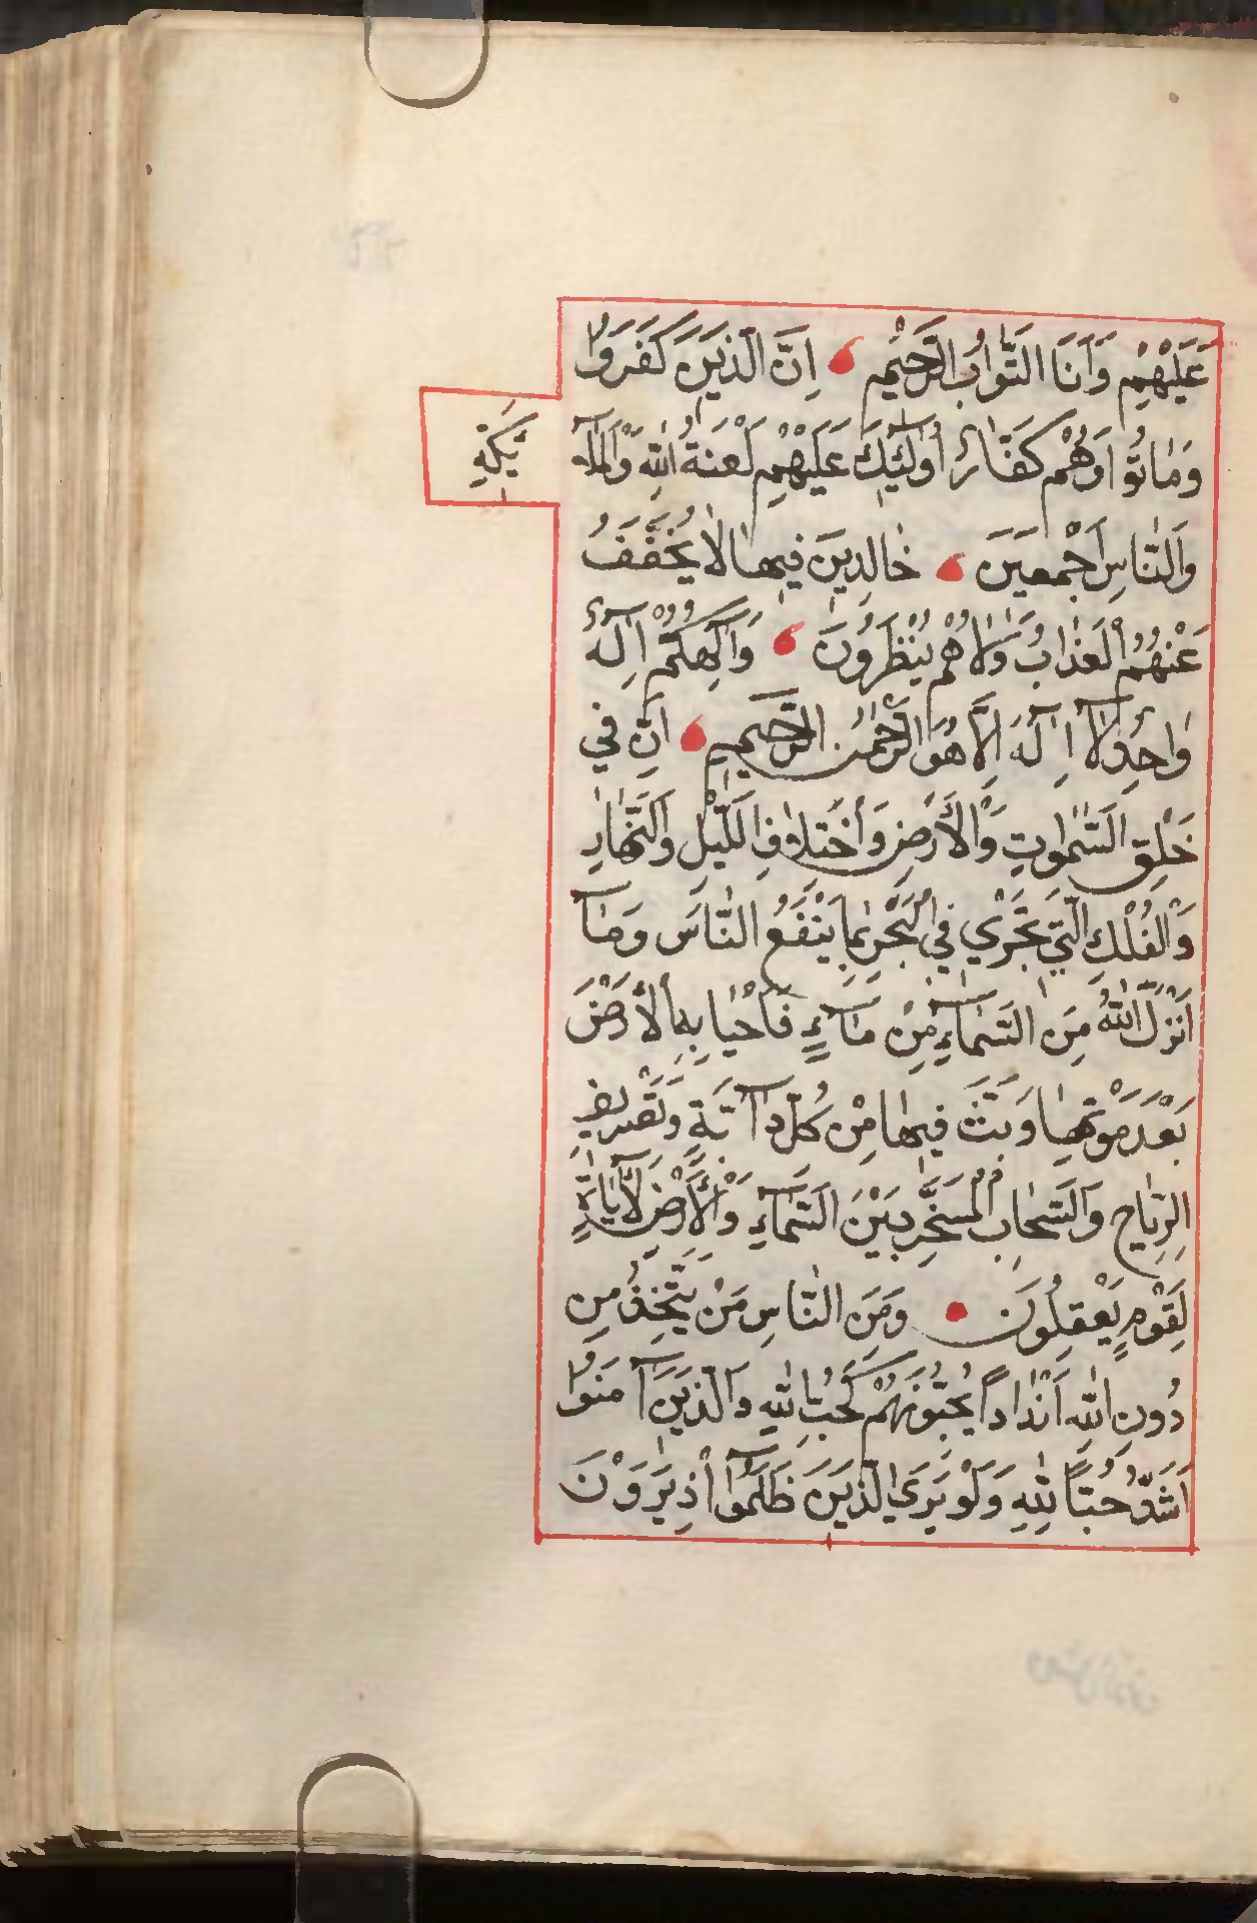 عَلَيْهِمْ وَأَنَا التَّوَّابُ الرَّحِيْمُ اِنَّ الَّذِيْنَ كَفَرُوْا
وَمَاتُوْا وَهُمْ كُفَّارٌ اُولٰٓئِكَ عَلَيْهِمْ لَعْنَةُ اللهِ وَالْمَلٰٓا
ئِكَةِ
وَالنَّاسِ اَجْمَعِيْنَ خَالِدِيْنَ فِيْهَا لَا يُخَفَّفُ
عَنْهُمُ الْعَذَابُ وَلَا هُمْ يُنْظَرُوْنَ وَاِلٰهُكُمْ اِلٰهٌ
وَاحِدٌ لَا اِلٰهَ اِلَّا هُوَ الرَّحْمٰنُ الرَّحِيْمُ اِنَّ فِيْ
خَلْقِ السَّمٰوَاتِ وَالْأَرْضِ وَاخْتِلَافِ اللَّيْلِ وَالنَّهَارِ
وَالْفُلْكِ الَّتِيْ تَجْرِيْ فِي الْبَحْرِ بِمَا يَنْفَعُ النَّاسَ وَمَآ
اَنْزَلَ اللهُ مِنَ السَّمَآءِ مِنْ مَآءٍ فَأَحْيَا بِهِ الْأَرْضَ
بَعْدَ مَوْتِهَا وَبَثَّ فِيْهَا مِنْ كُلِّ دَآبَّةٍ وَتَصْرِيْفِ
الرِّيَاحِ وَالسَّحَابِ الْمُسَخَّرِ بَيْنَ السَّمَآءِ وَالْأَرْضِ لَآيَاتٍ
لِقَوْمٍ يَعْقِلُوْنَ وَمِنَ النَّاسِ مَنْ يَتَّخِذُ مِنْ
دُوْنِ اللهِ اَنْدَادًا يُحِبُّوْنَهُمْ كَحُبِّ اللهِ وَالَّذِيْنَ آمَنُوْا
اَشَدُّ حُبًّا لِلّٰهِ وَلَوْ يَرَى الَّذِيْنَ ظَلَمُوْٓا اِذْ يَرَوْنَ